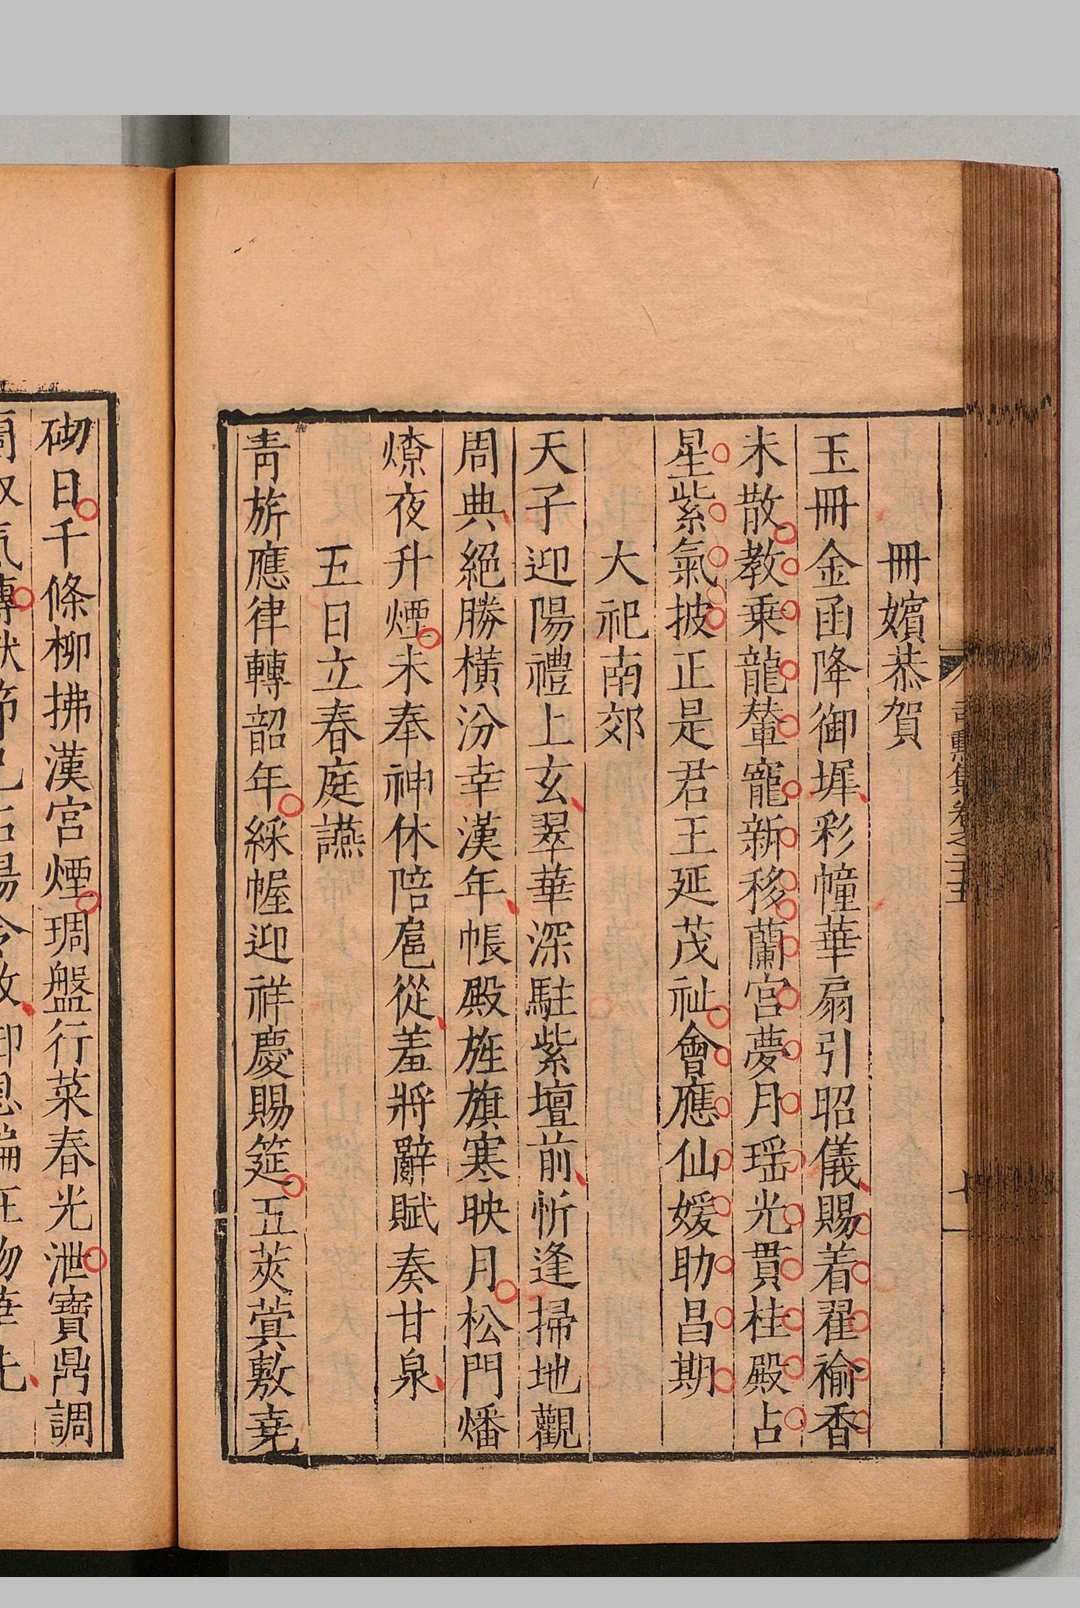 冊嬪恭賀
玉冊金函降御墀彩幢華扇引昭儀賜着翟褕香
未散教乗龍輦寵新移蘭宮夢月瑶光貫桂殿占
星紫氣披正是君王延茂祉會應仙媛助昌期
大祀南郊
天子迎陽禮上玄翠華深駐紫壇前忻逢掃地觀
周典絕勝橫汾幸漢年帳殿旌旗寒映月松門燔
燎夜升煙未奉神休陪扈從羞將辭賦奏甘泉
五日立春庭讌
青旂應律轉韶年綵幄迎祥慶賜筵五莢蓂敷堯
砌日千條柳拂漢宮煙琱盤行菜春光泄寶鼎調